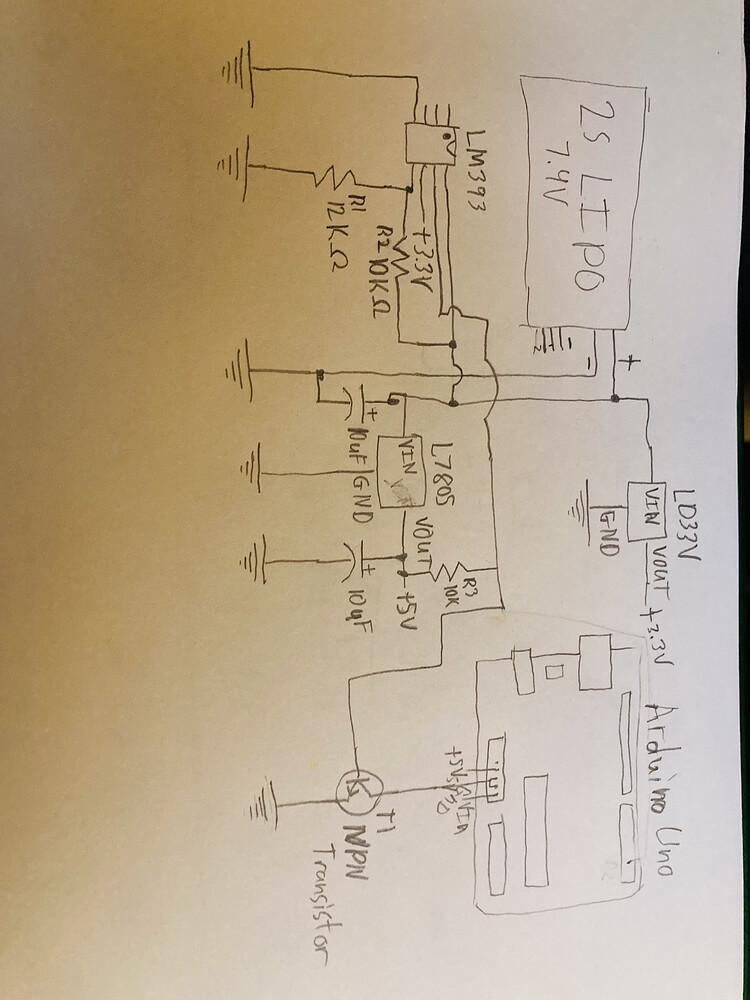 2S LIPO
7.4V
+
-
LM393
+3.3V
R1
12KΩ
R2 10KΩ
LD33V
VIN
VOUT
+3.3V
GND
L7805
VIN
VOUT
GND
+
10uF
+
10uF
+5V
R3
10K
Arduino Uno
+5V
VIn
T1
NPN
Transistor